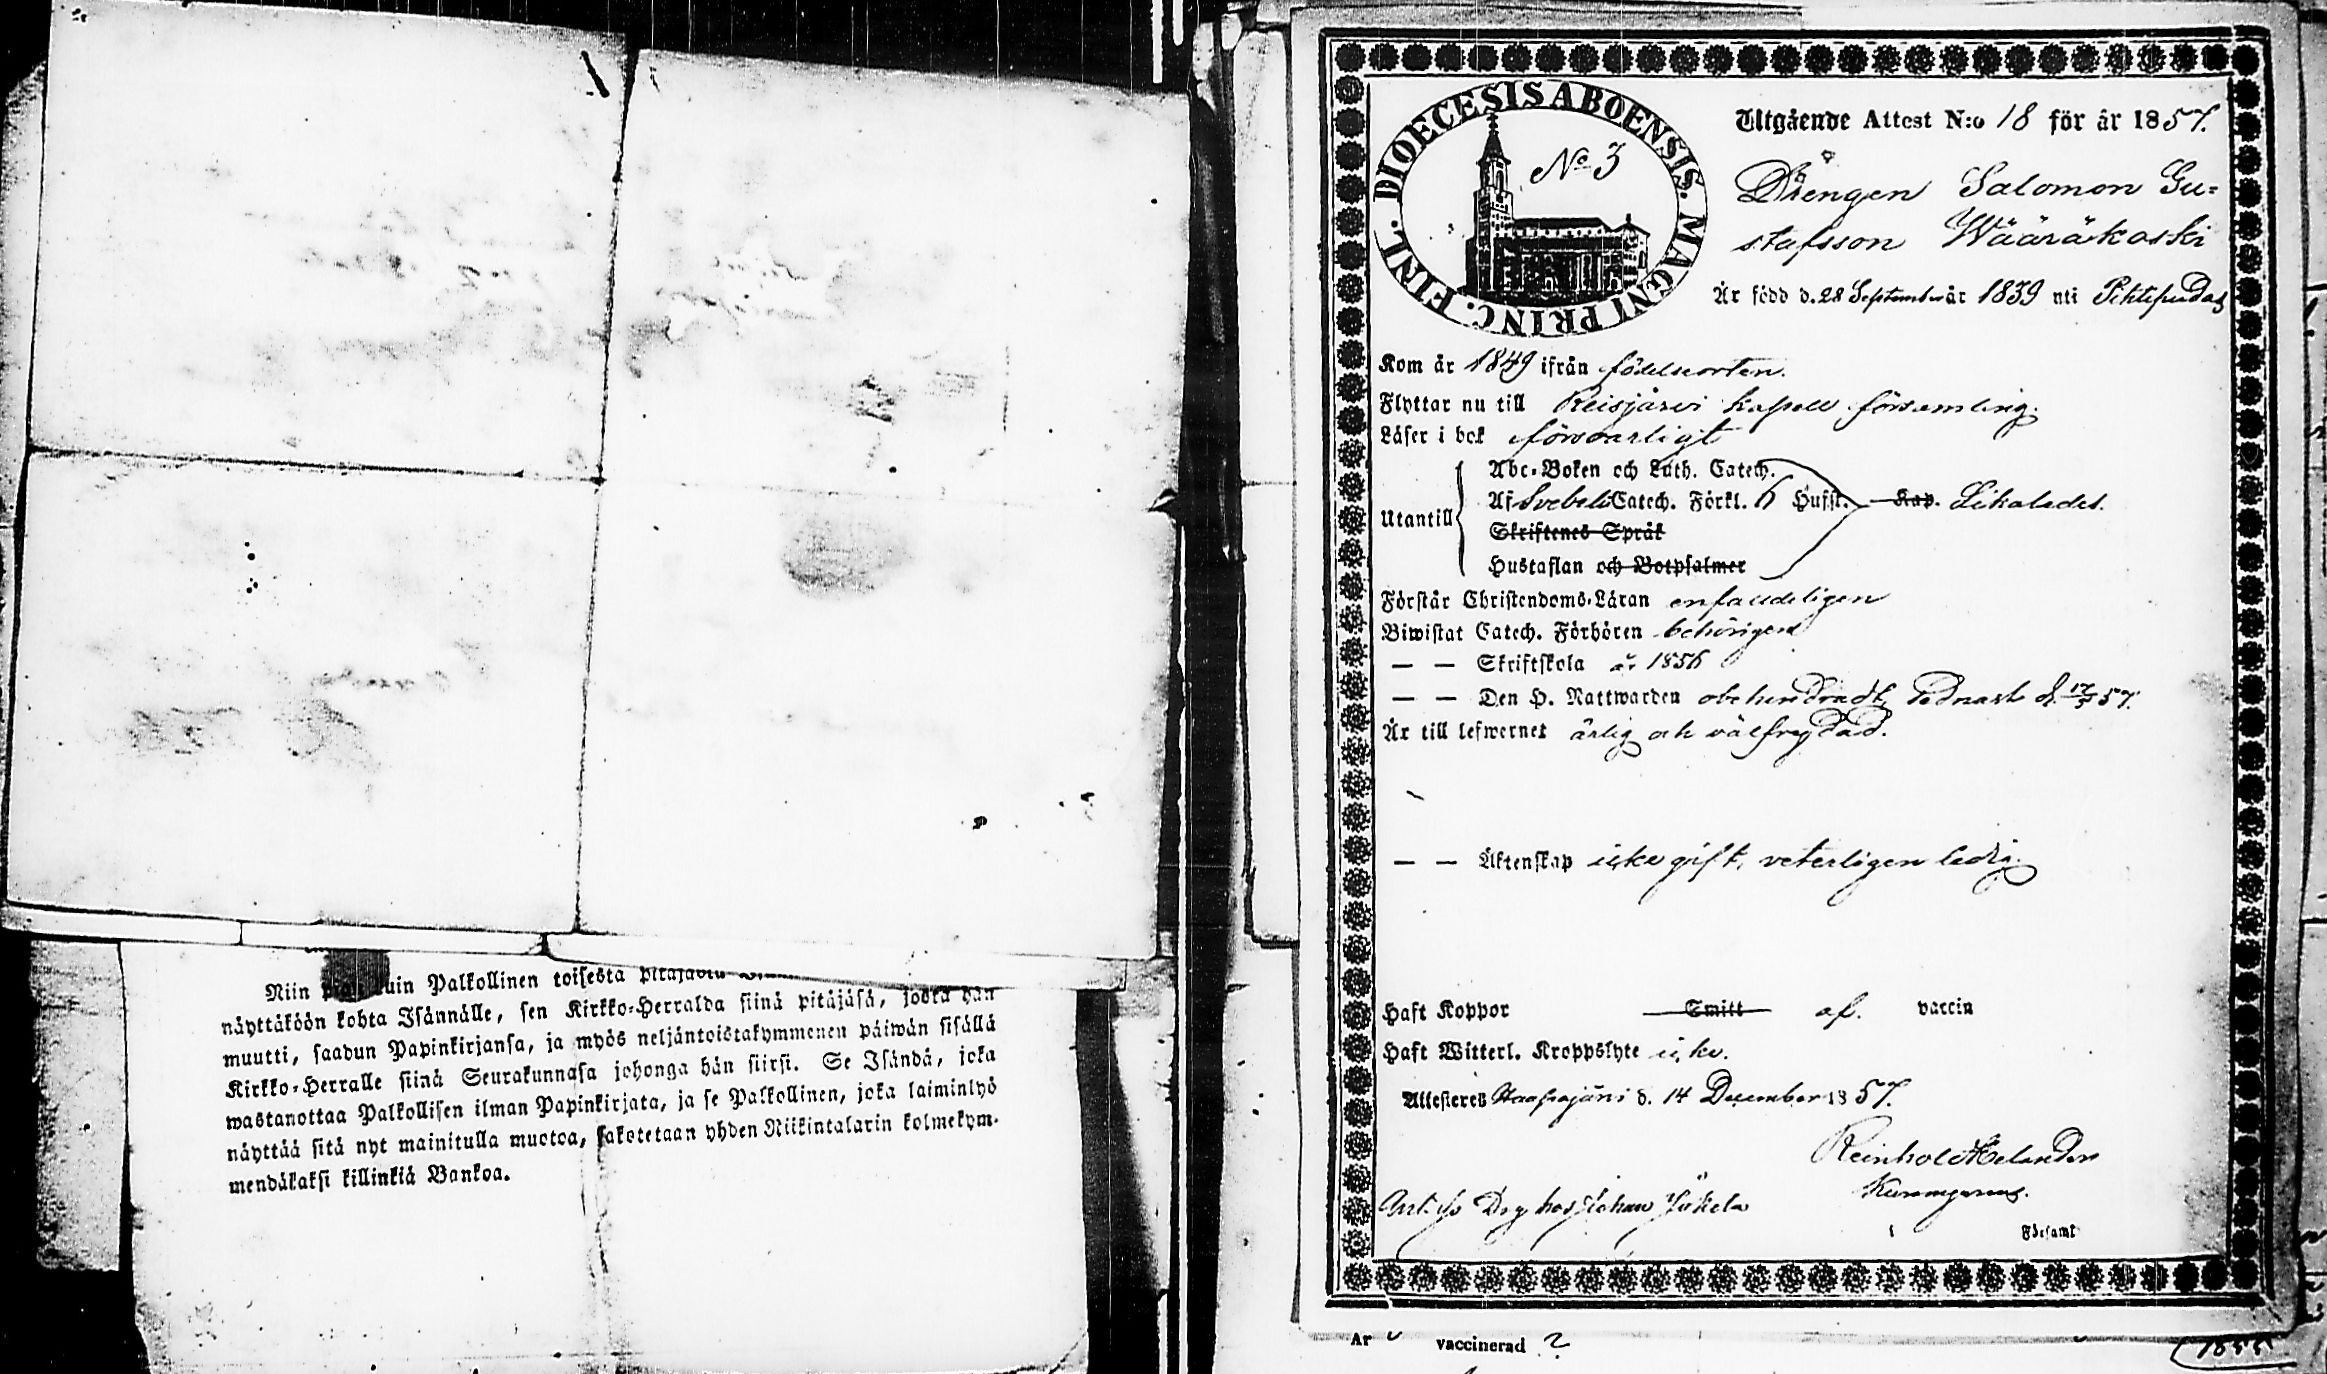 Niin kuin Palkollinen toisesta pitäjästä
näyttäköön kohta Isännälle, sen Kirkko-Herralda siinä pitäjäsä, josta hän
muutti, saadun Papinkirjansa, ja myös neljäntoistakymmenen päiwän sisällä
Kirkko-Herralle siinä Seurakunnasa johonga hän siirsi. Se Isändä, joka
wastanottaa Palkollisen ilman Papinkirjata, ja se Palkollinen, joka laiminlyö
näyttää sitä nyt mainitulla muotoa, sakotetaan yhden Riikintalarin kolmekym-
mendäkaksi killinkiä Bankoa.
DIOECESIS ABOENSIS. MAGNI PRINC. FINL.
No 3
Utgående Attest N:o 18 för år 1857.
Drengen Salomon Gu=
stafsson Wääräkoski
Är född d. 28 September år 1839 uti Pihtipudas
Kom år 1849 ifrån födelseorten.
Flyttar nu till Reisjärvi kapell församling.
Läser i bok försvarligt
Utantill
Abc-Boken och Luth. Catech.
Af Svebelii Catech. Förkl. 6 Hufst. Kap. Likaledes.
Skriftenes Språk
Hustaflan och Botpsalmer
Förstår Christendoms-Läran enfaldeligen
Biwistat Catech. Förhören behörigen
— — Skriftskola år 1856
— — Den H. Nattwarden obehindradt, sednast d. 17/5 57.
Är till lefwernet ärlig och välfrejdad.
— — Äktenskap icke gift, veterligen ledig.
Haft Koppor Smitt af. vaccin
Haft Witterl. Kroppslyte icke.
Attesteras Haapajärvi d. 14 December 1857.
Reinhold Helander
Ant. s. Drg hos Johan Jökela
Församl
År vaccinerad ?
1855